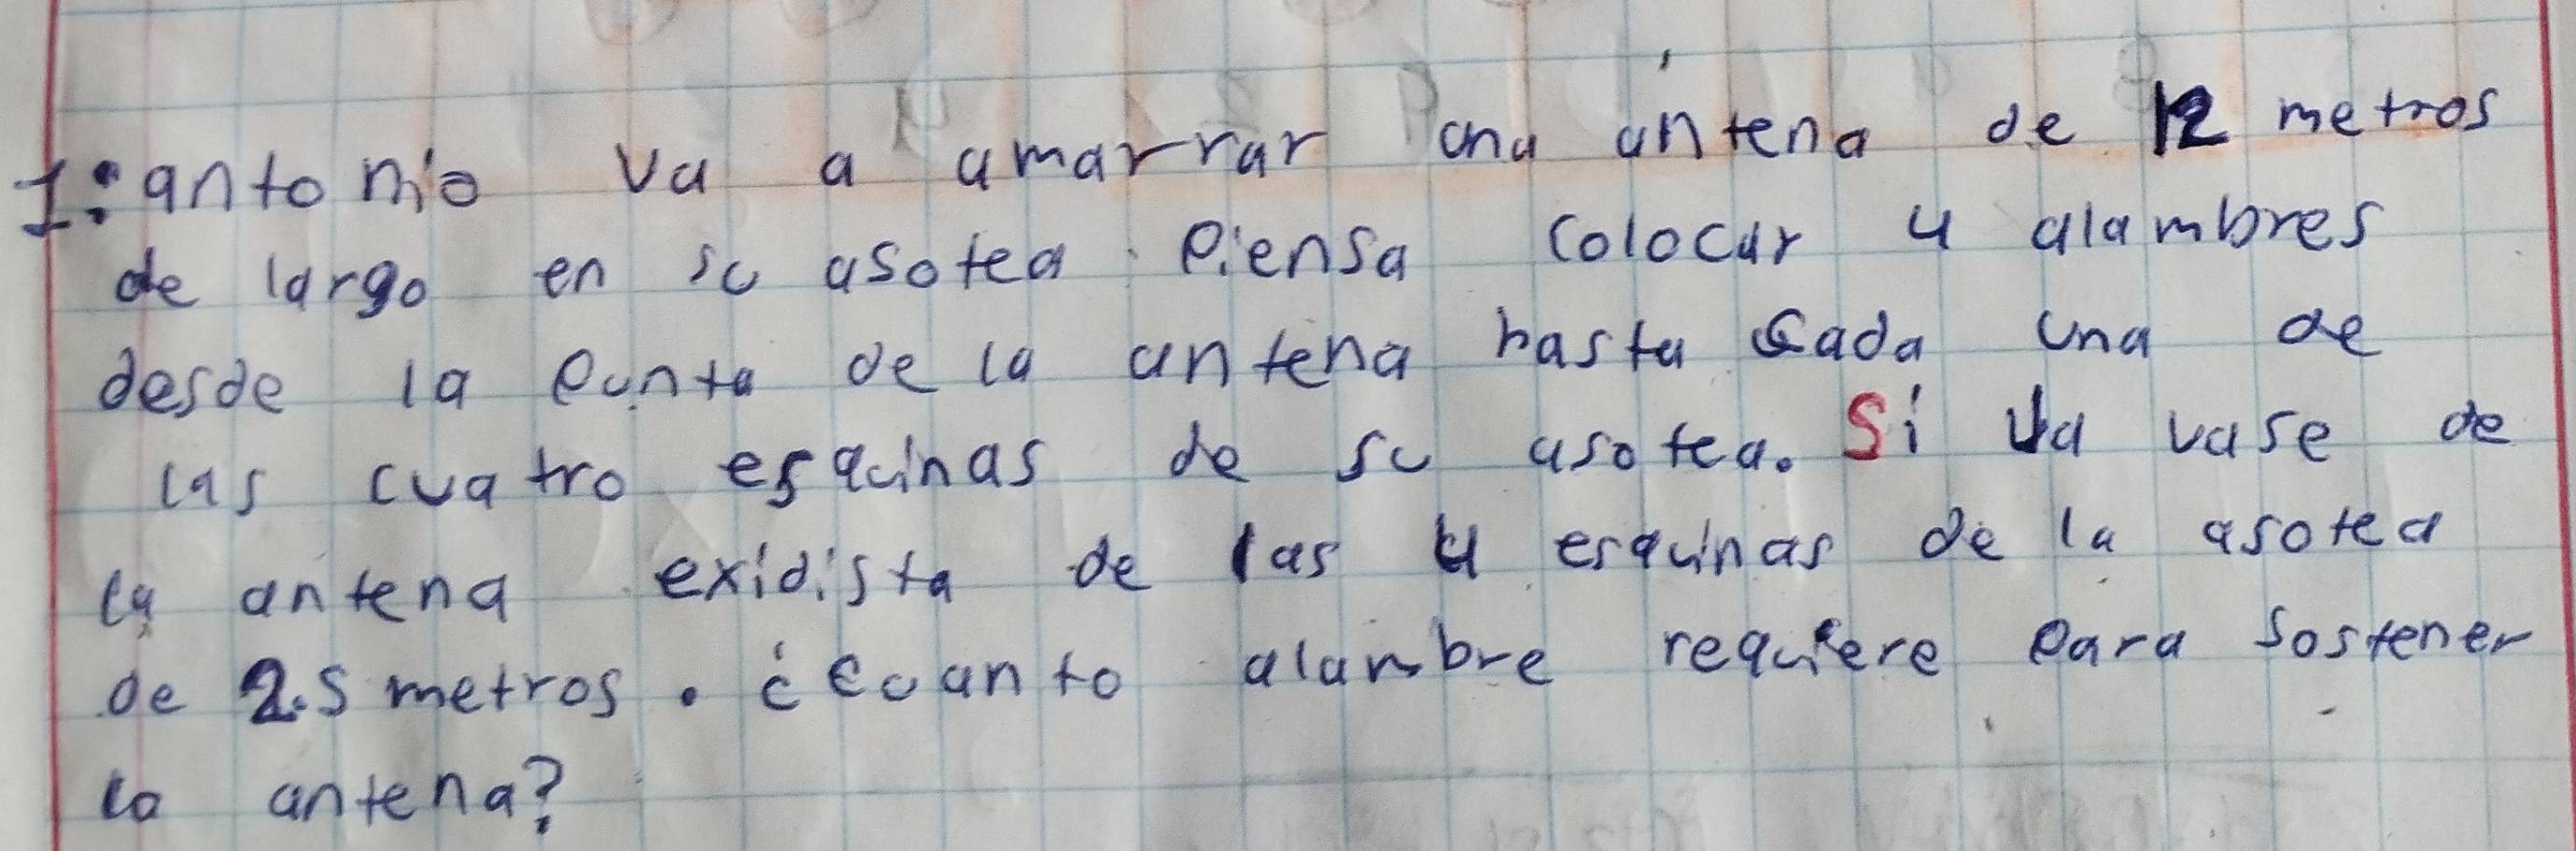 1: antonio va a amarrar una antena de 12 metros
de largo en su asotea. Piensa colocar 4 alambres
desde la punta de la antena hasta cada una de
las cuatro esquinas de su asotea. Si la vase de
la antena exidista de las 4 esquinas de la asotea
de 2.5 metros. ¿cuanto alambre requiere para sostener
la antena?